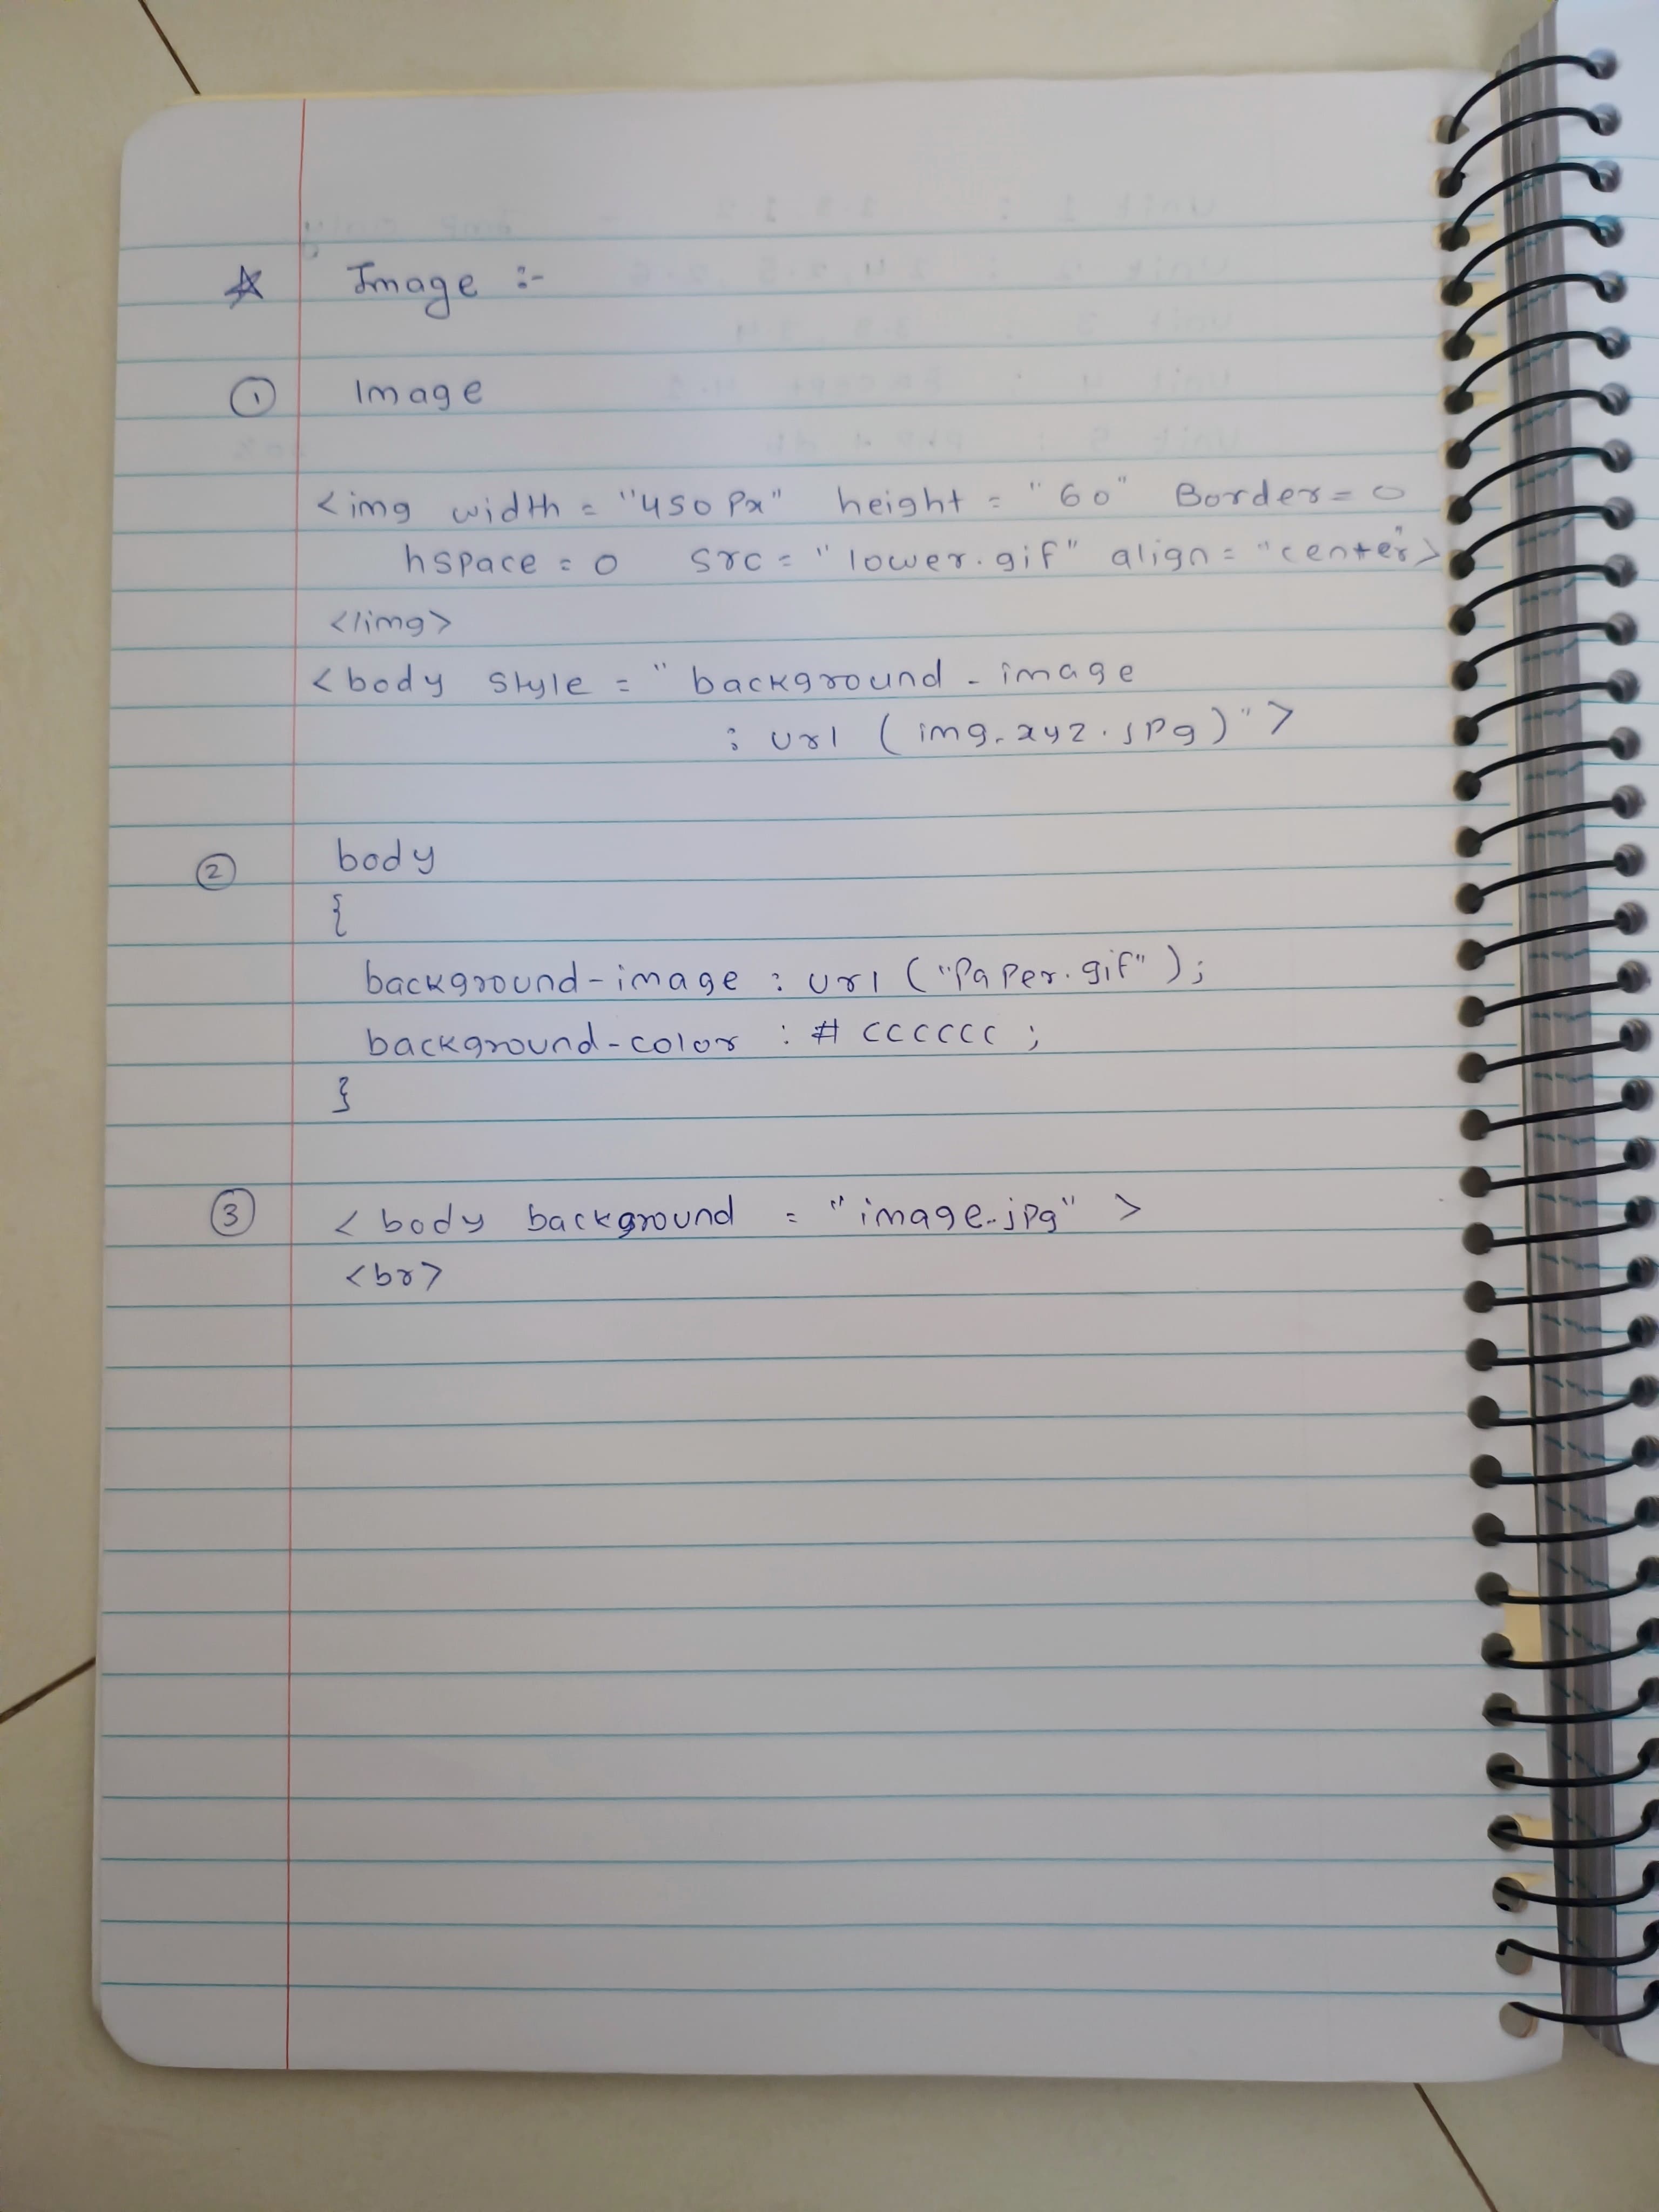 ☆ Image :-
① Image
<img width = "450 Px" height = "60" Border = 0
hspace = 0 src = "lower.gif" align = "center">
</img>
<body style = " background - image
: url ( img. xyz . jpg ) ">
② body
{
background-image : url ("PaPer.gif" );
background-color : # cccccc ;
}
③ < body background = "image.jpg" >
<br>